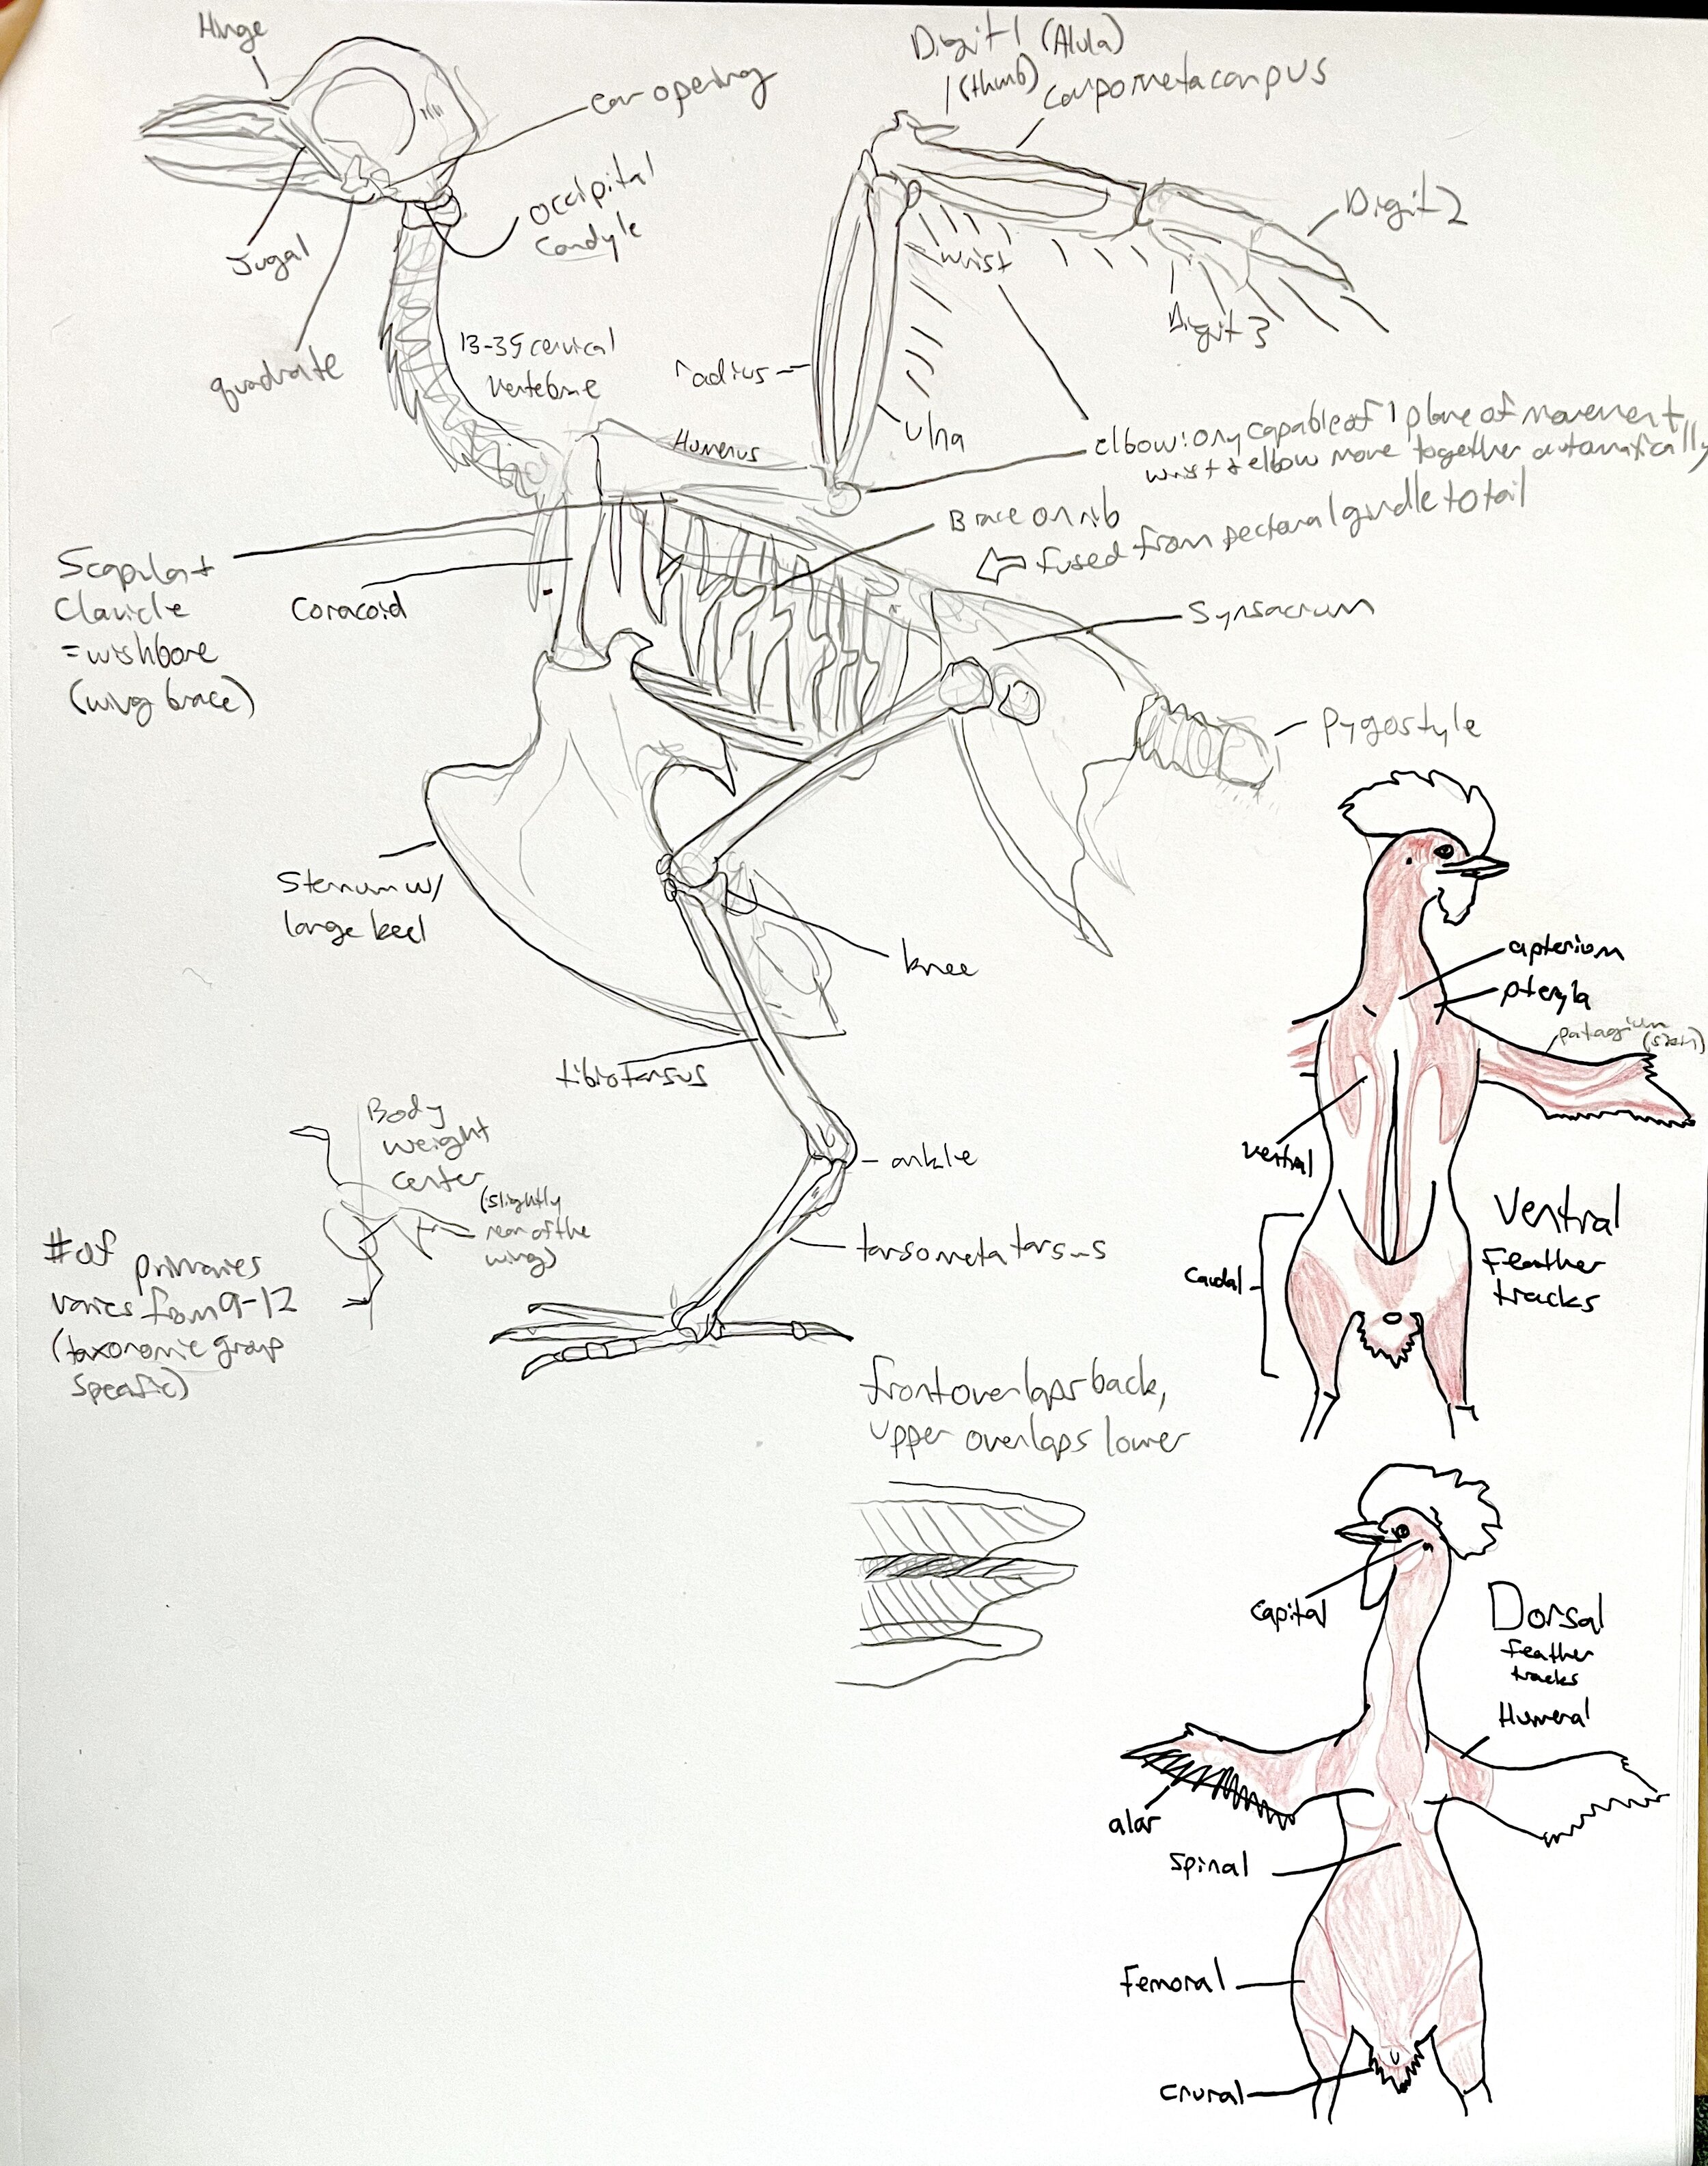 Hinge
ear opening
Digit 1 (Alula)
(thumb)
carpometacarpus
Occipital
Condyle
Digit 2
Jugal
wrist
Digit 3
quadrate
13-35 cervical
vertebrae
radius
ulna
Humerus
elbow: only capable of 1 plane of movement,
wrist & elbow move together automatically
Brace on rib
fused from pectoral girdle to tail
Scapula +
Clavicle
= wishbone
(wing brace)
Coracoid
Synsacrum
Pygostyle
Sternum w/
large keel
knee
apterium
pteryla
patagium
(skin)
tibiotarsus
Body
weight
center
(slightly
rear of the
wing)
ankle
ventral
Ventral
Feather
tracks
# of primaries
varies from 9-12
(taxonomic group
specific)
tarsometatarsus
caudal
front overlaps back,
upper overlaps lower
capital
Dorsal
feather
tracks
Humeral
alar
Spinal
Femoral
crural